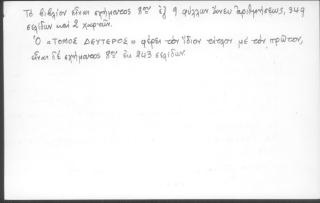 Τὸ βιβλίον εἶναι σχήματος 8ον ἐξ 9 φύλλων ἄνευ ἀριθμήσεως, 349
σελίδων καὶ 2 χαρτῶν.
Ὁ «ΤΟΜΟΣ ΔΕΥΤΕΡΟΣ» φέρει τὸν ἴδιον τίτλον μὲ τὸν πρῶτον,
εἶναι δὲ σχήματος 8ον ἐκ 243 σελίδων.